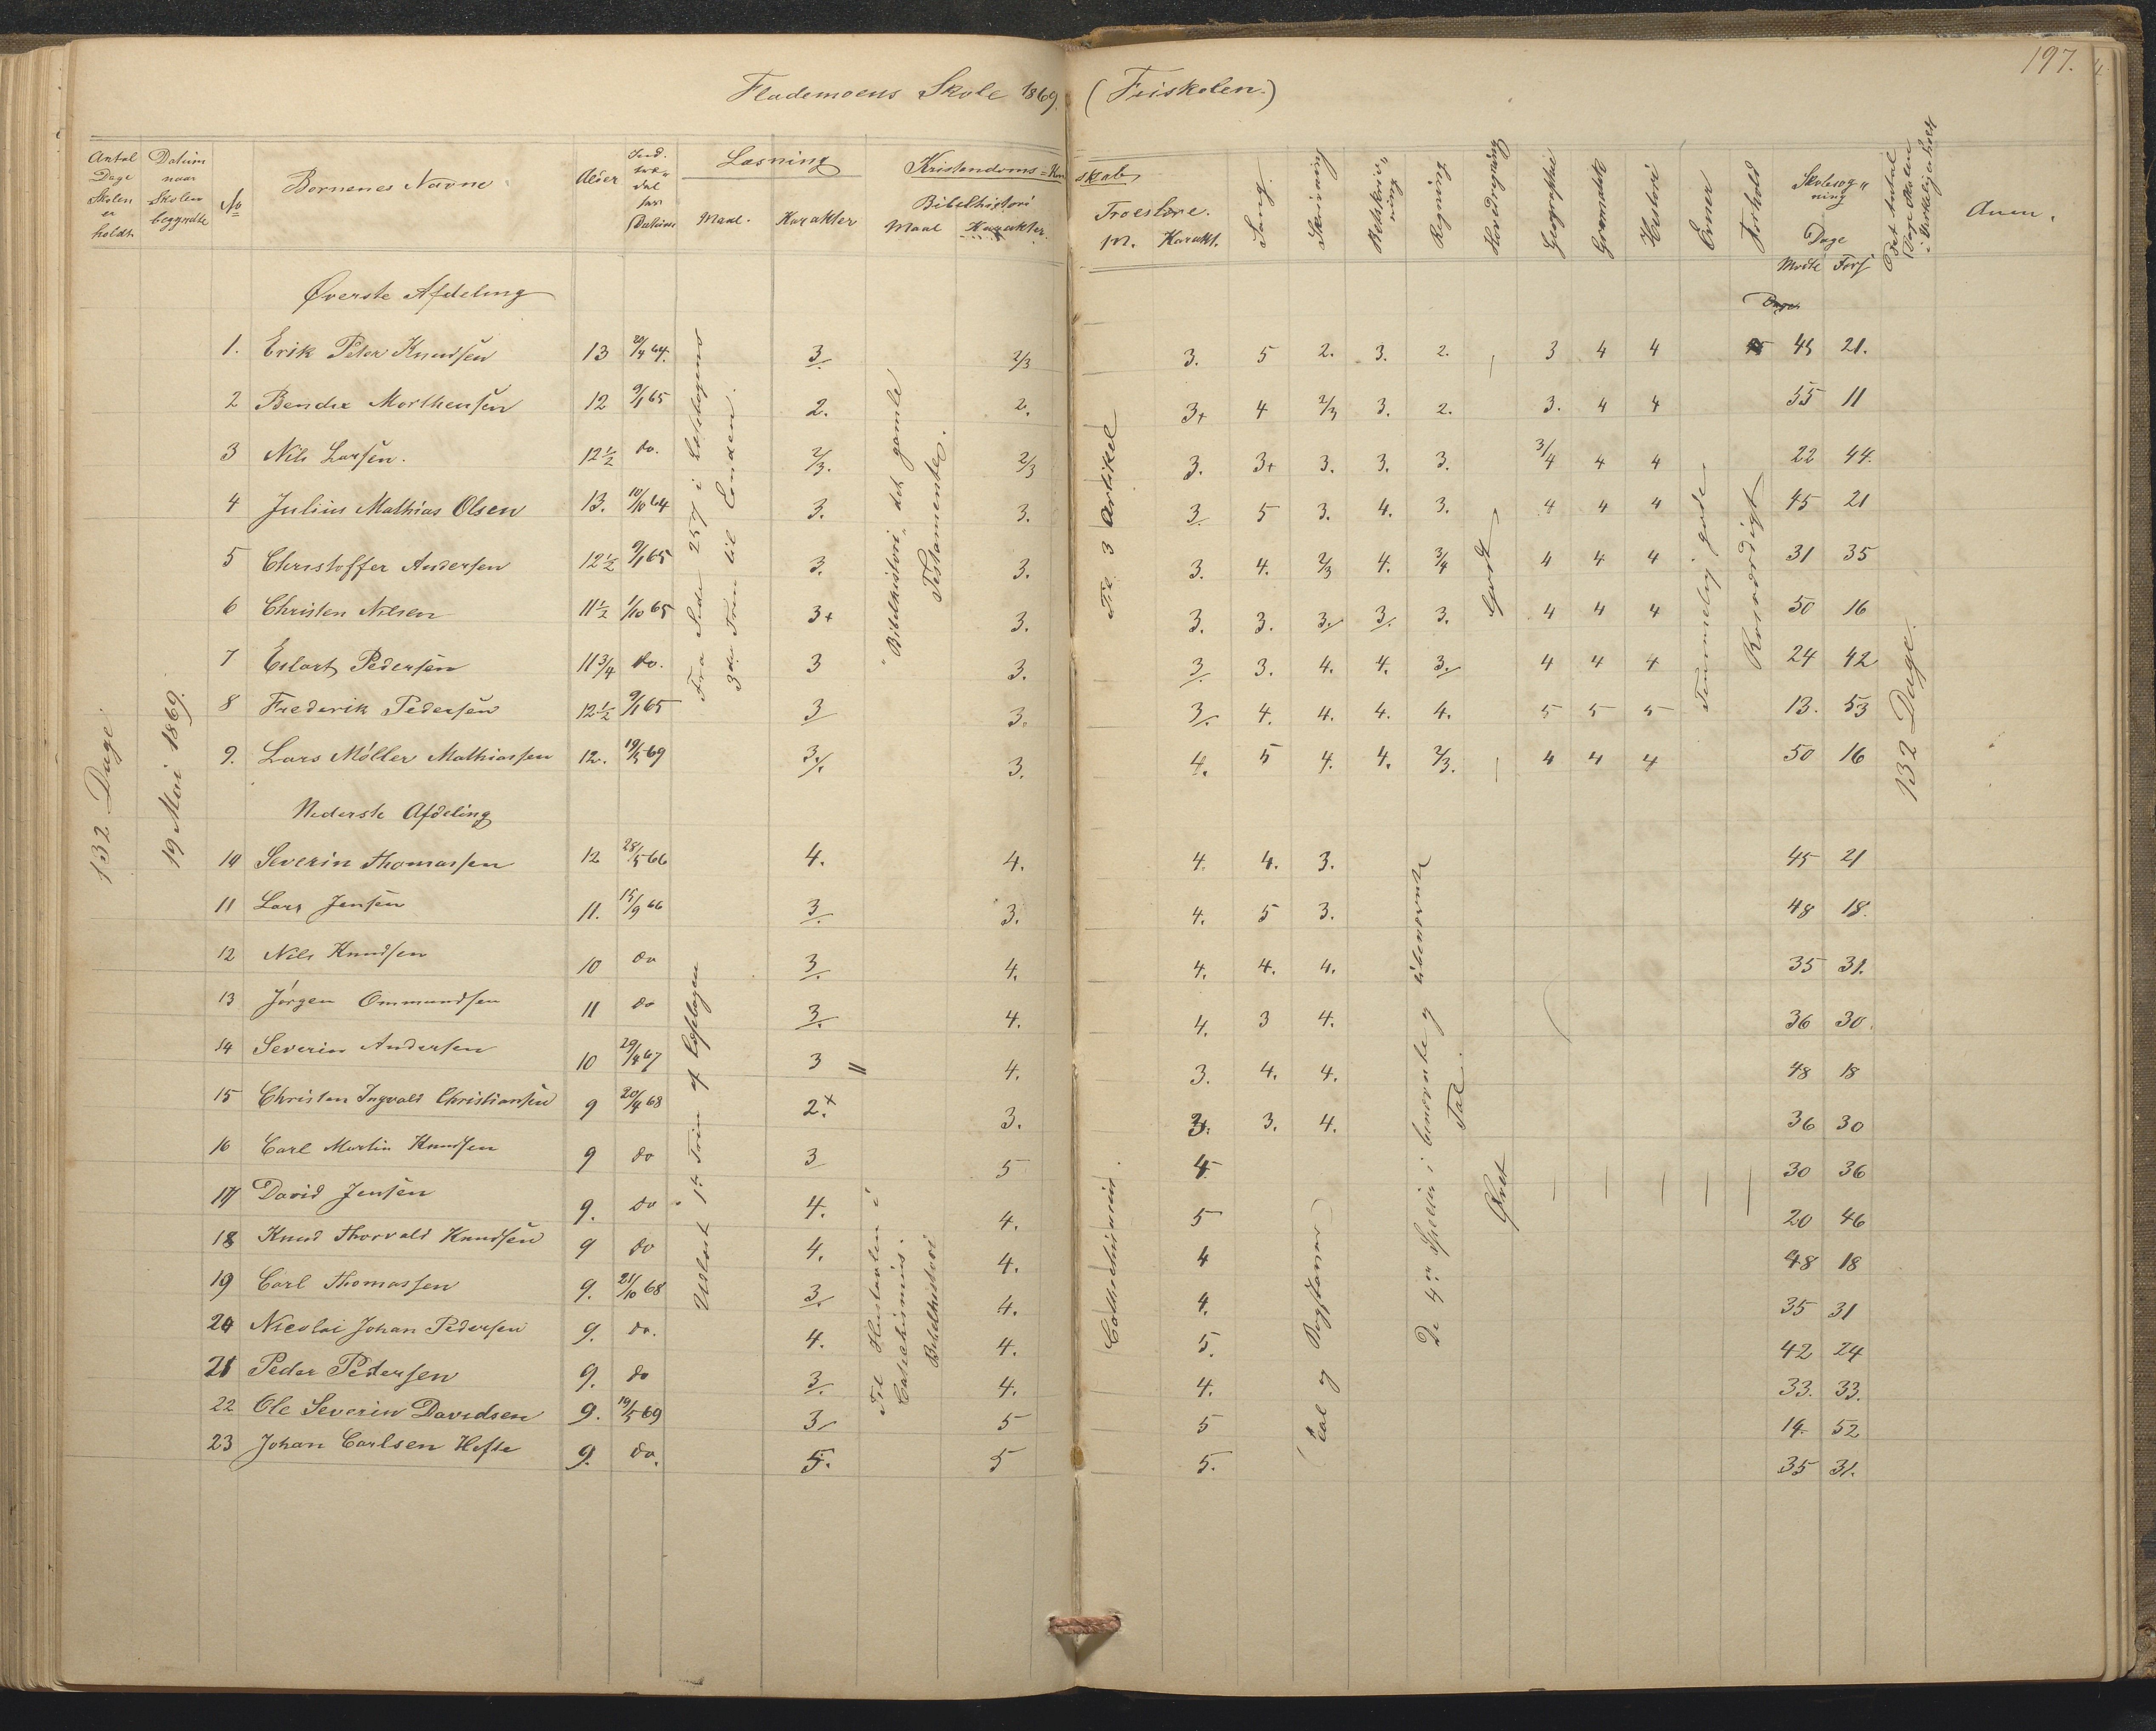 197.
Flademoens Skole 1869. (Friskolen.)
Antal Dage Skolen er holdt.
Datum naar Skolen begyndte
No
Børnenes Navne.
Alder
Datum
Læsning
Maal. Karakter
Kristendoms=Kundskab
Bibelhistori
Maal Karakter.
Troeslære.
M. Karakt.
Sang.
Skrivning
Retskrivning
Regning.
Haandtegning
Geographie
Gramatik
Historie
Evner
Forhold
Skolesøgning
Dage
Mødte Fors
Det Antal Dage Skolen i Virkelighed
Anm.
Øverste Afdeling
1. Erik Peter Knudsen 13 20/4 64. 3 2/3 3. 5 2. 3. 2. 3 4 4 45 21.
2 Bendix Morthensen 12 9/1 65 2. 2. 3+ 4 2/3 3. 2. 3. 4 4 55 11
3 Nils Larsen. 12½ do. 2/3. 2/3 3. 3+ 3. 3. 3. 3/4 4 4 22 44.
4 Julius Mathias Olsen 13. 10/10 64 3. 3. 3 5 3. 4. 3. 4 4 4 45 21
5 Christoffer Andersen 12½ 9/1 65 3. 3. 3. 4. 2/3 4. 3/4 4 4 4 31 35
6 Christen Nilsen 11½ 1/10 65 3+ 3. 3. 3. 3. 3. 3. 4 4 4 50 16
7 Eilart Pedersen 11¾ do. 3 3. 3 3. 4. 4. 3. 4 4 4 24 42
8 Frederik Pedersen 12½ 9/1 65 3 3. 3. 4. 4. 4. 4. 5 5 5 13. 53
9. Lars Möller Mathiassen 12. 19/5 69 3. 3. 4. 5 4. 4. 2/3. 4 4 4 50 16
132 Dage.
19 Mai 1869.
Fra Side 257 i Læsebogens 3die Trin til Enden.
Bibelhistori det gamle Testamente.
Til 3 Artikel
Godt
Temmelig gode
Rosværdigt
132 Dage.
Nederste Afdeling
10 Severin Thomassen 12 28/5 66 4. 4. 4. 4. 3. 45 21
11 Lars Jensen 11. 15/9 66 3. 3. 4. 5 3. 48 18.
12 Nils Knudsen 10 do 3. 4. 4. 4. 4. 35 31.
13 Jörgen Ommundsen 11 do 3. 4. 4. 3 4. 36 30.
14 Severin Andersen 10 29/4 67 3 4. 3. 4. 4. 48 18
15 Christen Ingvald Christiansen 9 20/4 68 2.+ 3. 3. 3. 4. 36 30
16 Carl Martin Knudsen 9 do 3 5 4 30 36
17 David Jensen 9. do 4. 4. 5 20 46
18 Knud Thorvald Knudsen 9 do 4. 4. 4 48 18
19 Carl Thomassen 9. 21/10 68 3. 4. 4. 35 31
20 Nicolai Johan Pedersen 9. do. 4. 4. 5. 42 24
21 Peder Pedersen 9. do 3. 4. 4. 33. 33.
22 Ole Severin Davidsen 9. 19/5 69 3 5 5 14. 52
23 Johan Carlsen Hefte 9. do. 5. 5 5. 35 31.
1ste Trin af Læsebogen
Til Hustavlen i Catechismus.
Bibelhistori
Catechismus.
(Tal og Bogstaver)
De 4 Specier i benævnte og ubenævnte Tal.